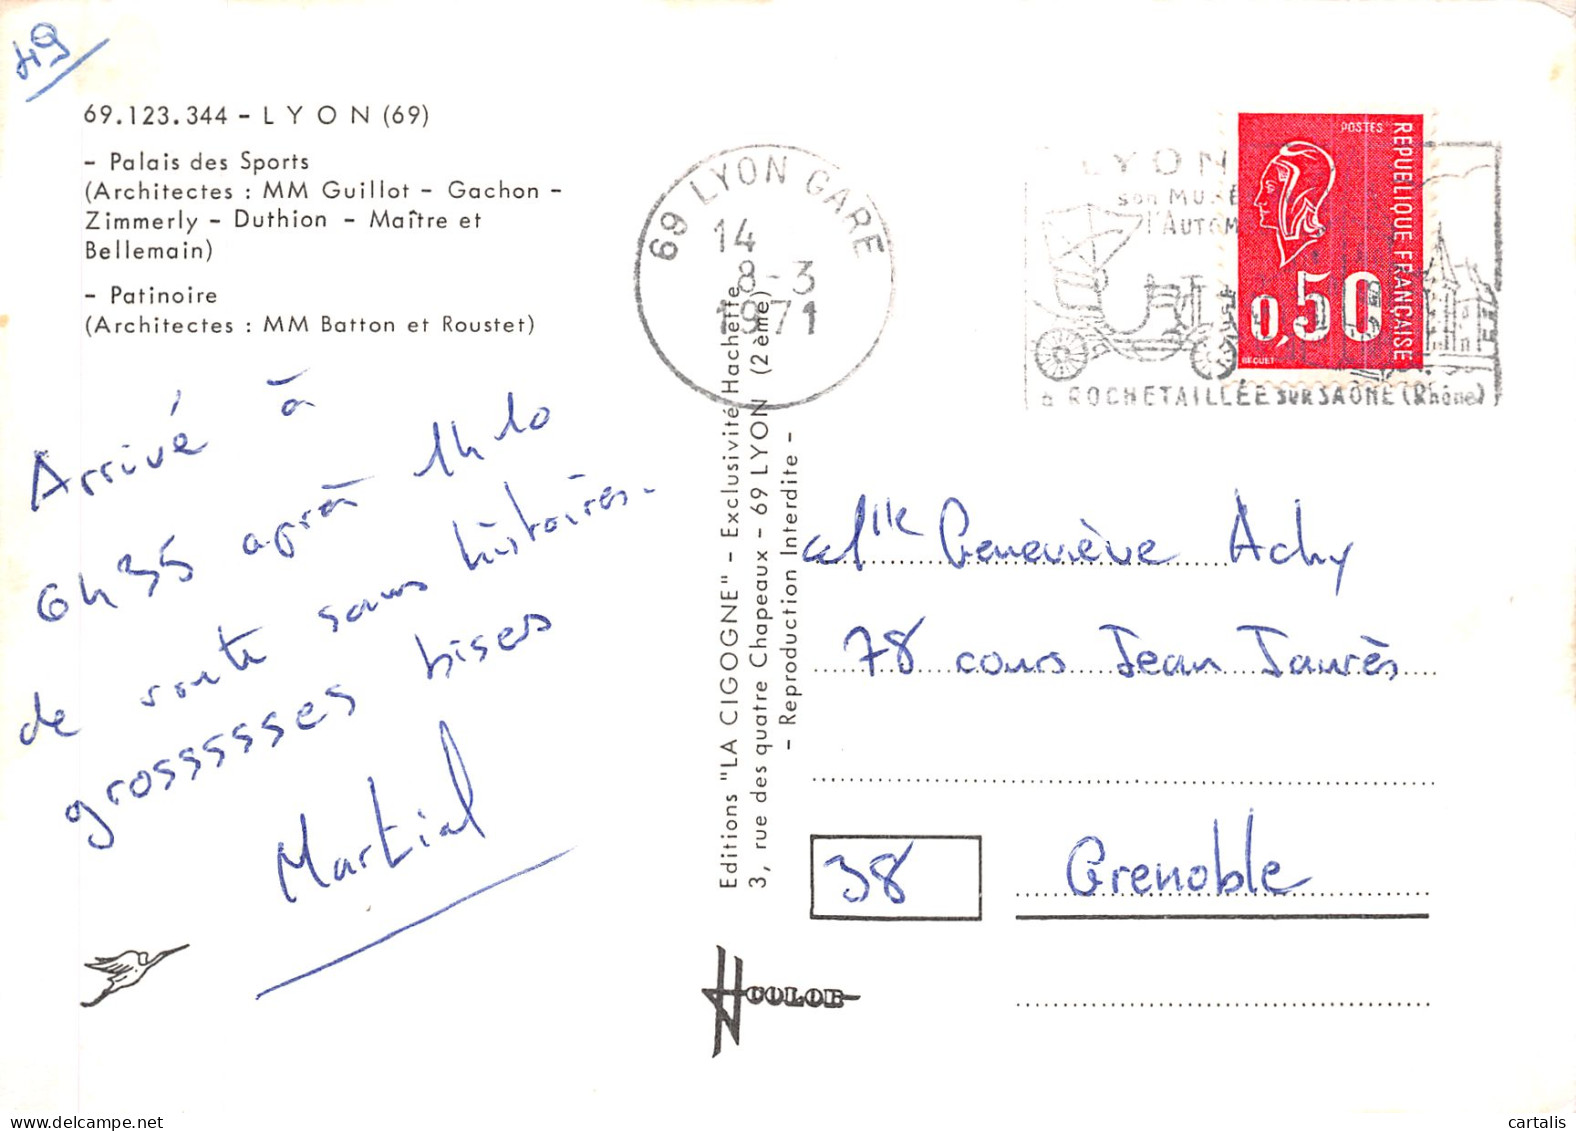 49
69.123.344 - LYON (69)
- Palais des Sports
(Architectes : MM Guillot - Gachon -
Zimmerly - Duthion - Maître et
Bellemain)
- Patinoire
(Architectes : MM Batton et Roustet)
Arrivé à
6h35 après 1h10
de route sans histoires.
grosssssses bises
Martial
Editions "LA CIGOGNE" - Exclusivité Hachette
3, rue des quatre Chapeaux - 69 LYON (2ème)
- Reproduction Interdite -
HCOLOR
69 LYON GARE
14
8-3
1971
LYON
son MUSÉ
l'AUTOM
à ROCHETAILLÉE SUR SAONE (Rhône)
POSTES
REPUBLIQUE FRANÇAISE
0,50
BEQUET
Mlle Geneviève Achy
78 cours Jean Jaurès
38 Grenoble
cartalis